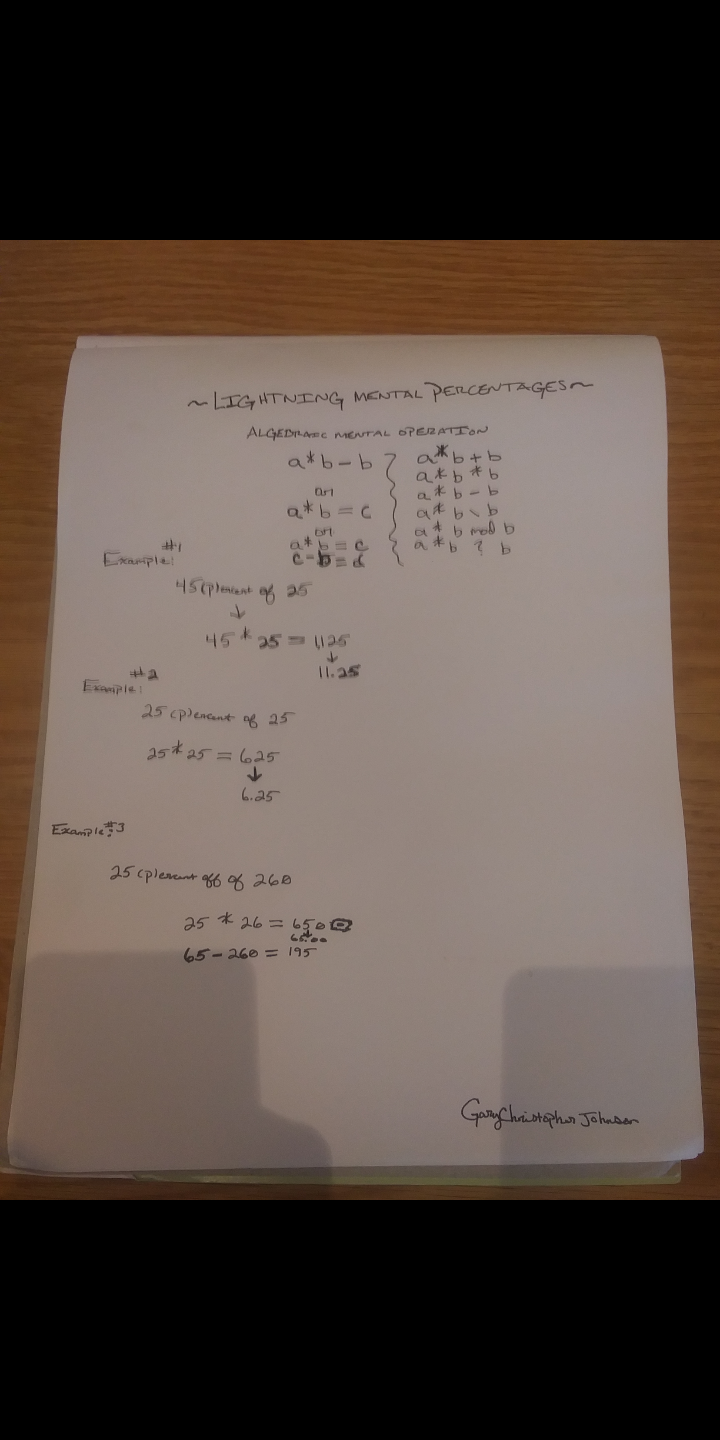 ~ LIGHTNING MENTAL PERCENTAGES ~
ALGEBRAIC MENTAL OPERATION
a*b - b
or
a*b = c
or
a*b = c
c - b = d
a*b + b
a*b * b
a*b - b
a*b \ b
a*b mod b
a*b ? b
#1
Example:
45 (p)ercent of 25
↓
45 * 25 = 1,125
↓
11.25
#2
Example:
25 (p)ercent of 25
25 * 25 = 625
↓
6.25
Example #3:
25 (p)ercent off of 260
25 * 26 = 650
65.00
65 - 260 = 195
Gary Christopher Johnson